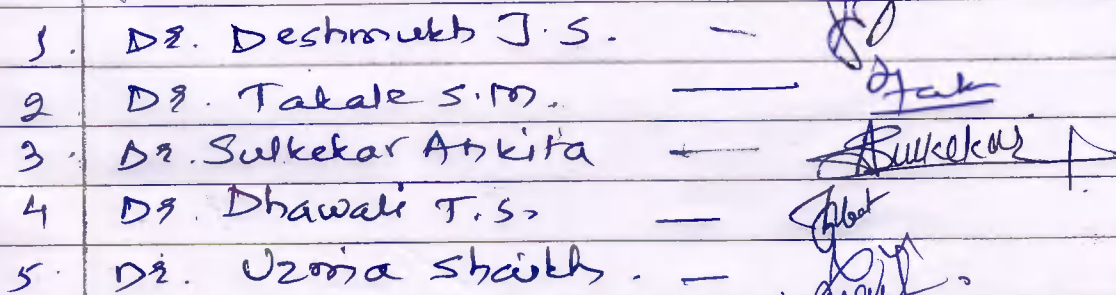 1. Dr. Deshmukh J.S. —
2 Dr. Takale S.M. —
3. Dr. Sulkekar Ankita — Sulkekar
4 Dr. Dhawale T.S. —
5. Dr. Uzma Shaikh. —